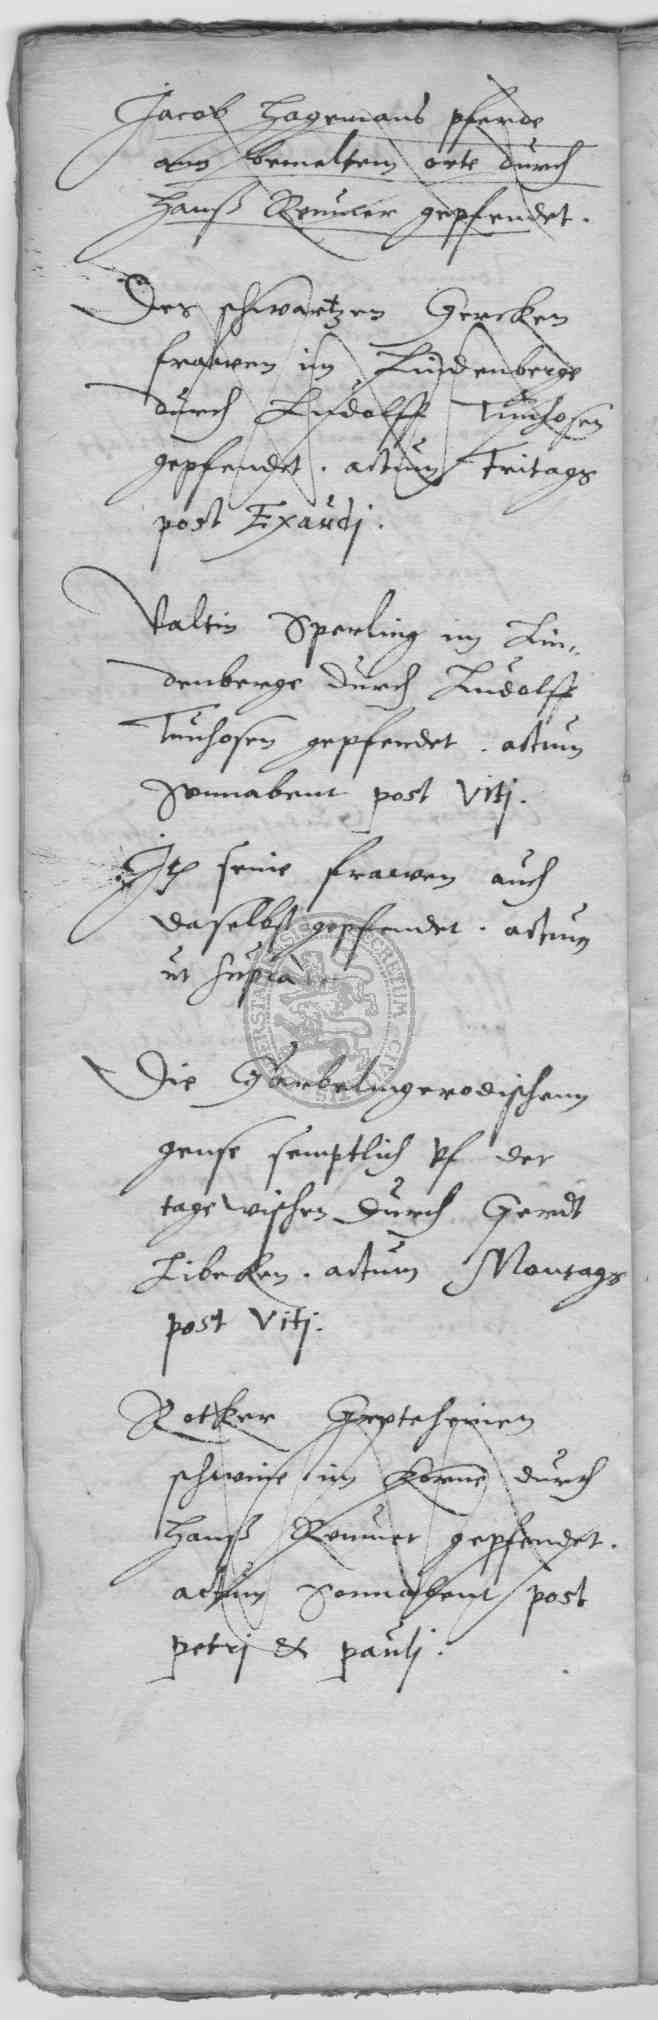 Jacob Hagemans pferde
ann bemeltem orte durch
Hanß Remmer gepfendet.
Des schwartzen Gercken
frawen im Lindenberge
durch Ludolff Tunhosen
gepfendet. actum Fritags
post Exaudj.
Valtin Sperling im Lin„
denberge durch Ludolff
Tunhosen gepfendet. actum
Sonnabent post Vitj.
Itē seine frawen auch
daselbst gepfendet. actum
ut supra
Die Harbelingerodischenn
gense semptlich vf der
tagewischen durch Gerdt
Libeken. actum Montags
post Vitj.
schwine im Korne durch
Hanß Remmer gepfendet.
actum Sonnabent post
petrj & paulj.